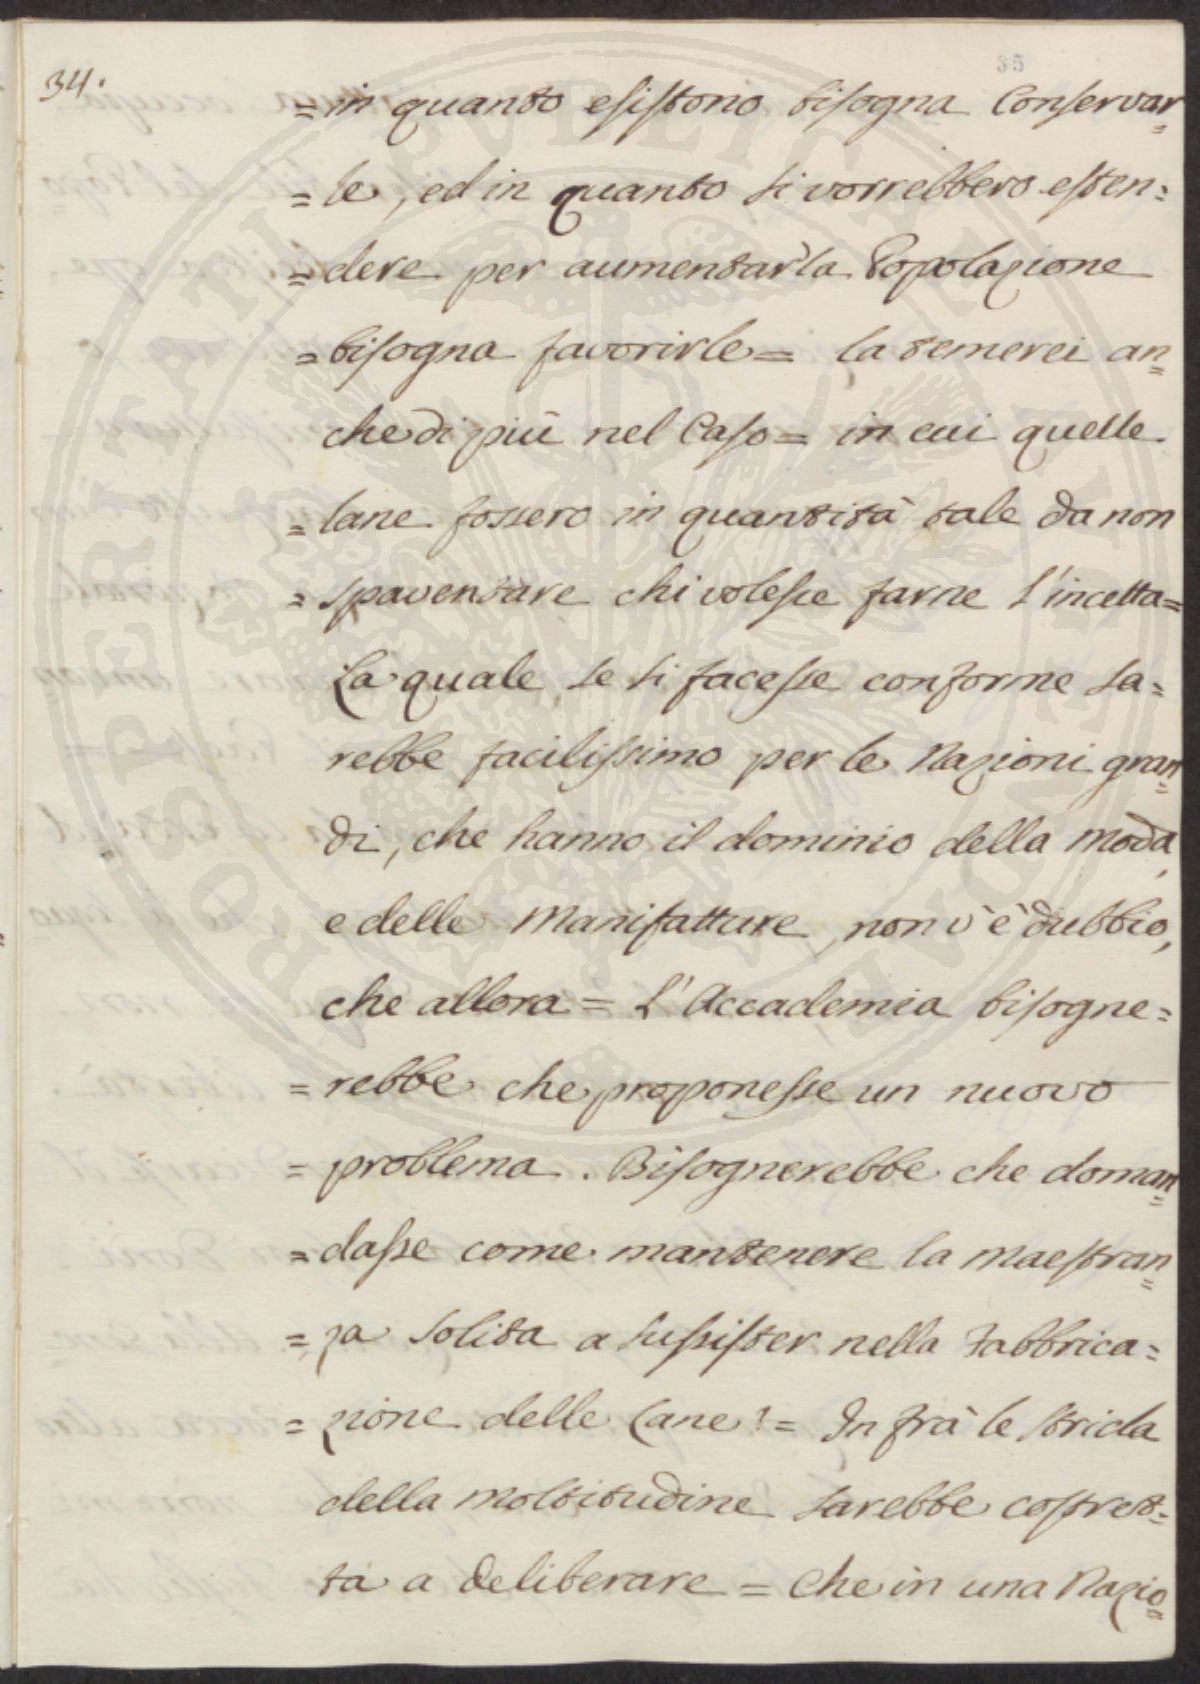 35
34.
= in quanto esistono bisogna Conservar=
= le, ed in quanto si vorrebbero esten=
= dere per aumentar la Popolazione
= bisogna favorirle = la temerei an=
che di più nel Caso = in cui quelle
= lane fossero in quantità tale da non
= spaventare chi volesse farne l'incetta =
La quale se si facesse conforme sa=
rebbe facilissimo per le Nazioni gran=
di, che hanno il dominio della moda,
e delle Manifatture, non v'è dubbio,
che allora = L'Accademia bisogne=
= rebbe che proponesse un nuovo
= problema. Bisognerebbe che doman=
= dasse come mantenere la maestran=
= za solita a sussister nella Fabbrica=
= zione delle Lane? = In frà le strida
della moltitudine sarebbe costret=
ta a deliberare = Che in una Nazio=
PROSPERITATI PUBLICAE AUGENDAE